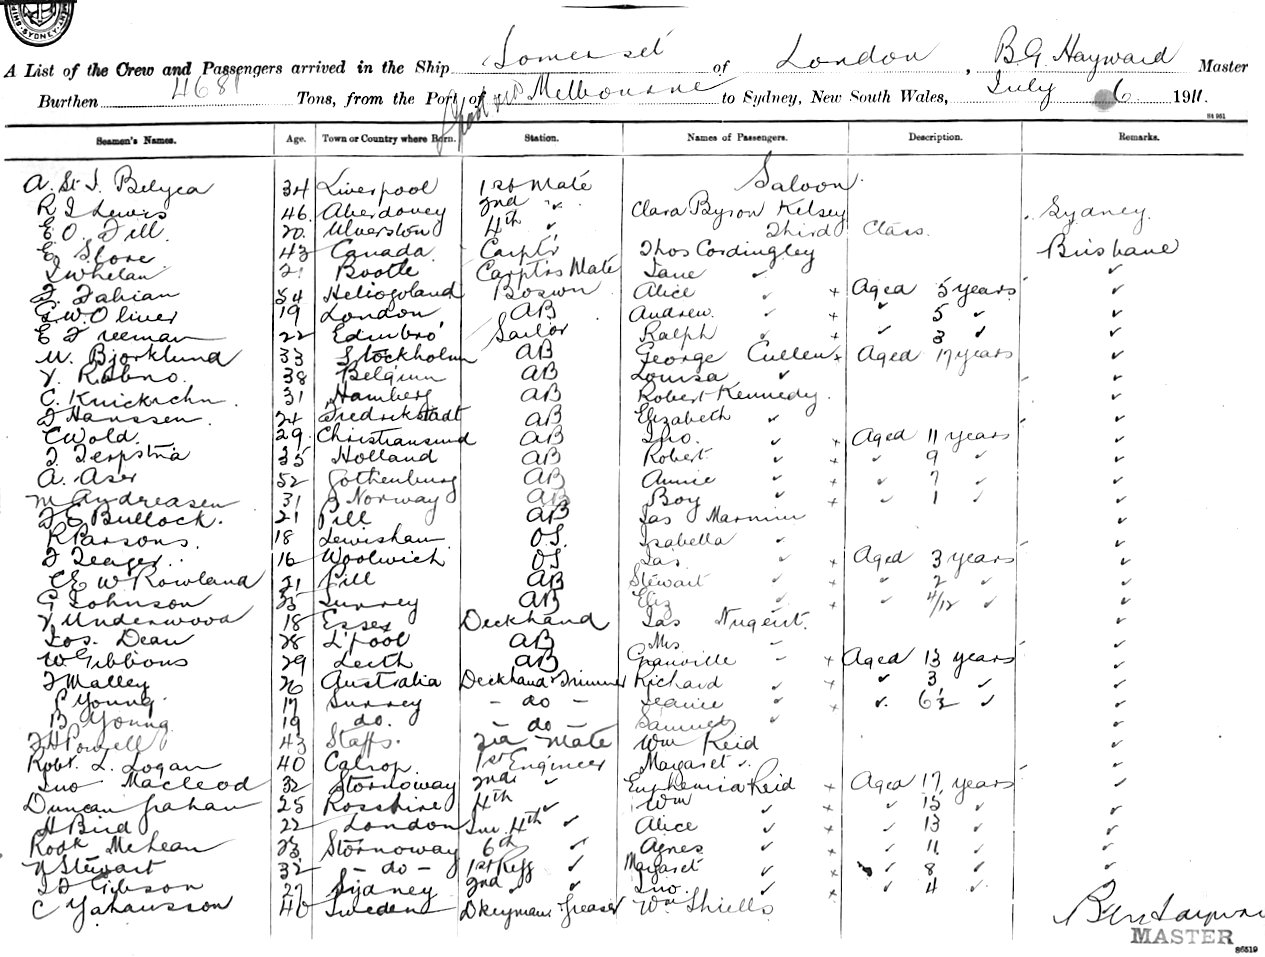 SYDNEY
A List of the Crew and Passengers arrived in the Ship Somerset of London, B G Hayward Master
Burthen 4681 Tons, from the Port of Melbourne to Sydney, New South Wales, July 6 1911.
St 961
Seamen's Names. Age. Town or Country where Born. Station. Names of Passengers. Description. Remarks.
Saloon.
A. St. J. Belyea 34 Liverpool 1st Mate
R J Lewis 46 Aberdovey 2nd " Clara Byron Kelsey Sydney.
E O. Till 20 Ulverston 4th ✓ Third Class.
E Slove 43 Canada Carptr Thos Cordingley Brisbane
J Whelan 21 Bootle Carptrs Mate Jane ✓ ✓
F. Fabian 54 Heliogoland Boswn Alice ✓ + Aged 5 years ✓
G. W. Oliver 19 London AB Andrew. ✓ + ✓ 5 ✓ ✓
E Freeman 22 Edinbro' Sailor Ralph ✓ + ✓ 3 ✓ ✓
M. Bjorklund 33 Stockholm AB George Cullen + Aged 17 years ✓
38 Belgium AB Louisa ✓ ✓
C. 31 Hamberg AB Robert Kennedy. ✓
J Hanssen. 24 Fredrikstadt AB Elizabeth ✓ ✓
C Wold. 29 Christiansund AB Jno. ✓ + Aged 11 years ✓
J. Terpstra 35 Holland AB Robert ✓ + ✓ 9 ✓ ✓
A. Aser 52 Gothenburg AB Annie ✓ + ✓ 7 ✓ ✓
M Andreasen 31 Norway AB Boy ✓ + ✓ 1 ✓ ✓
F E Bullock. 21 Pill AB Jas ✓
R Parsons. 18 Lewisham O.S. Isabella ✓ ✓
F Teager. 16 Woolwich OS Jas. ✓ + Aged 3 years ✓
C E W Rowland 21 Pill AB Stewart ✓ + ✓ 2 ✓ ✓
G Johnson 35 Surrey AB Eliz ✓ + ✓ 4/12 ✓ ✓
Underwood 18 Essex Deckhand Jas Nugent. ✓
Jos. Dean 28 L'pool AB Mrs ✓ ✓
W Gibbons 29 Leith AB Granville ✓ + Aged 13 years ✓
J Malley 26 Australia Deckhand & Trimmer Richard ✓ + ✓ 3 ✓ ✓
P Young 17 Surrey - do - Jeanie ✓ + ✓ 6½ ✓ ✓
B Young 19 do. - do - Samuel ✓ ✓
F H Powell 43 Staffs. Mate Wm Reid ✓
Robt. L. Logan 40 1st Engineer Margaret ✓ ✓
Jno Macleod 32 Stornoway 2nd ✓ Euphemia Reid + Aged 17 years ✓
Duncan Graham 25 Rosshire 4th ✓ Wm ✓ + ✓ 15 ✓ ✓
H Bird 22 London Jun. 4th ✓ Alice ✓ + ✓ 13 ✓ ✓
McLean 23 Stornoway 6th ✓ Agnes ✓ + ✓ 11 ✓ ✓
N Stewart 32 - do - 1st Refg ✓ Margaret ✓ + ✓ 8 ✓ ✓
J D Gibson 27 Sydney 2nd ✓ ✓ Jno. ✓ + ✓ 4 ✓ ✓
C 40 Sweden Dkeyman Greaser Wm Shiells
MASTER
86519